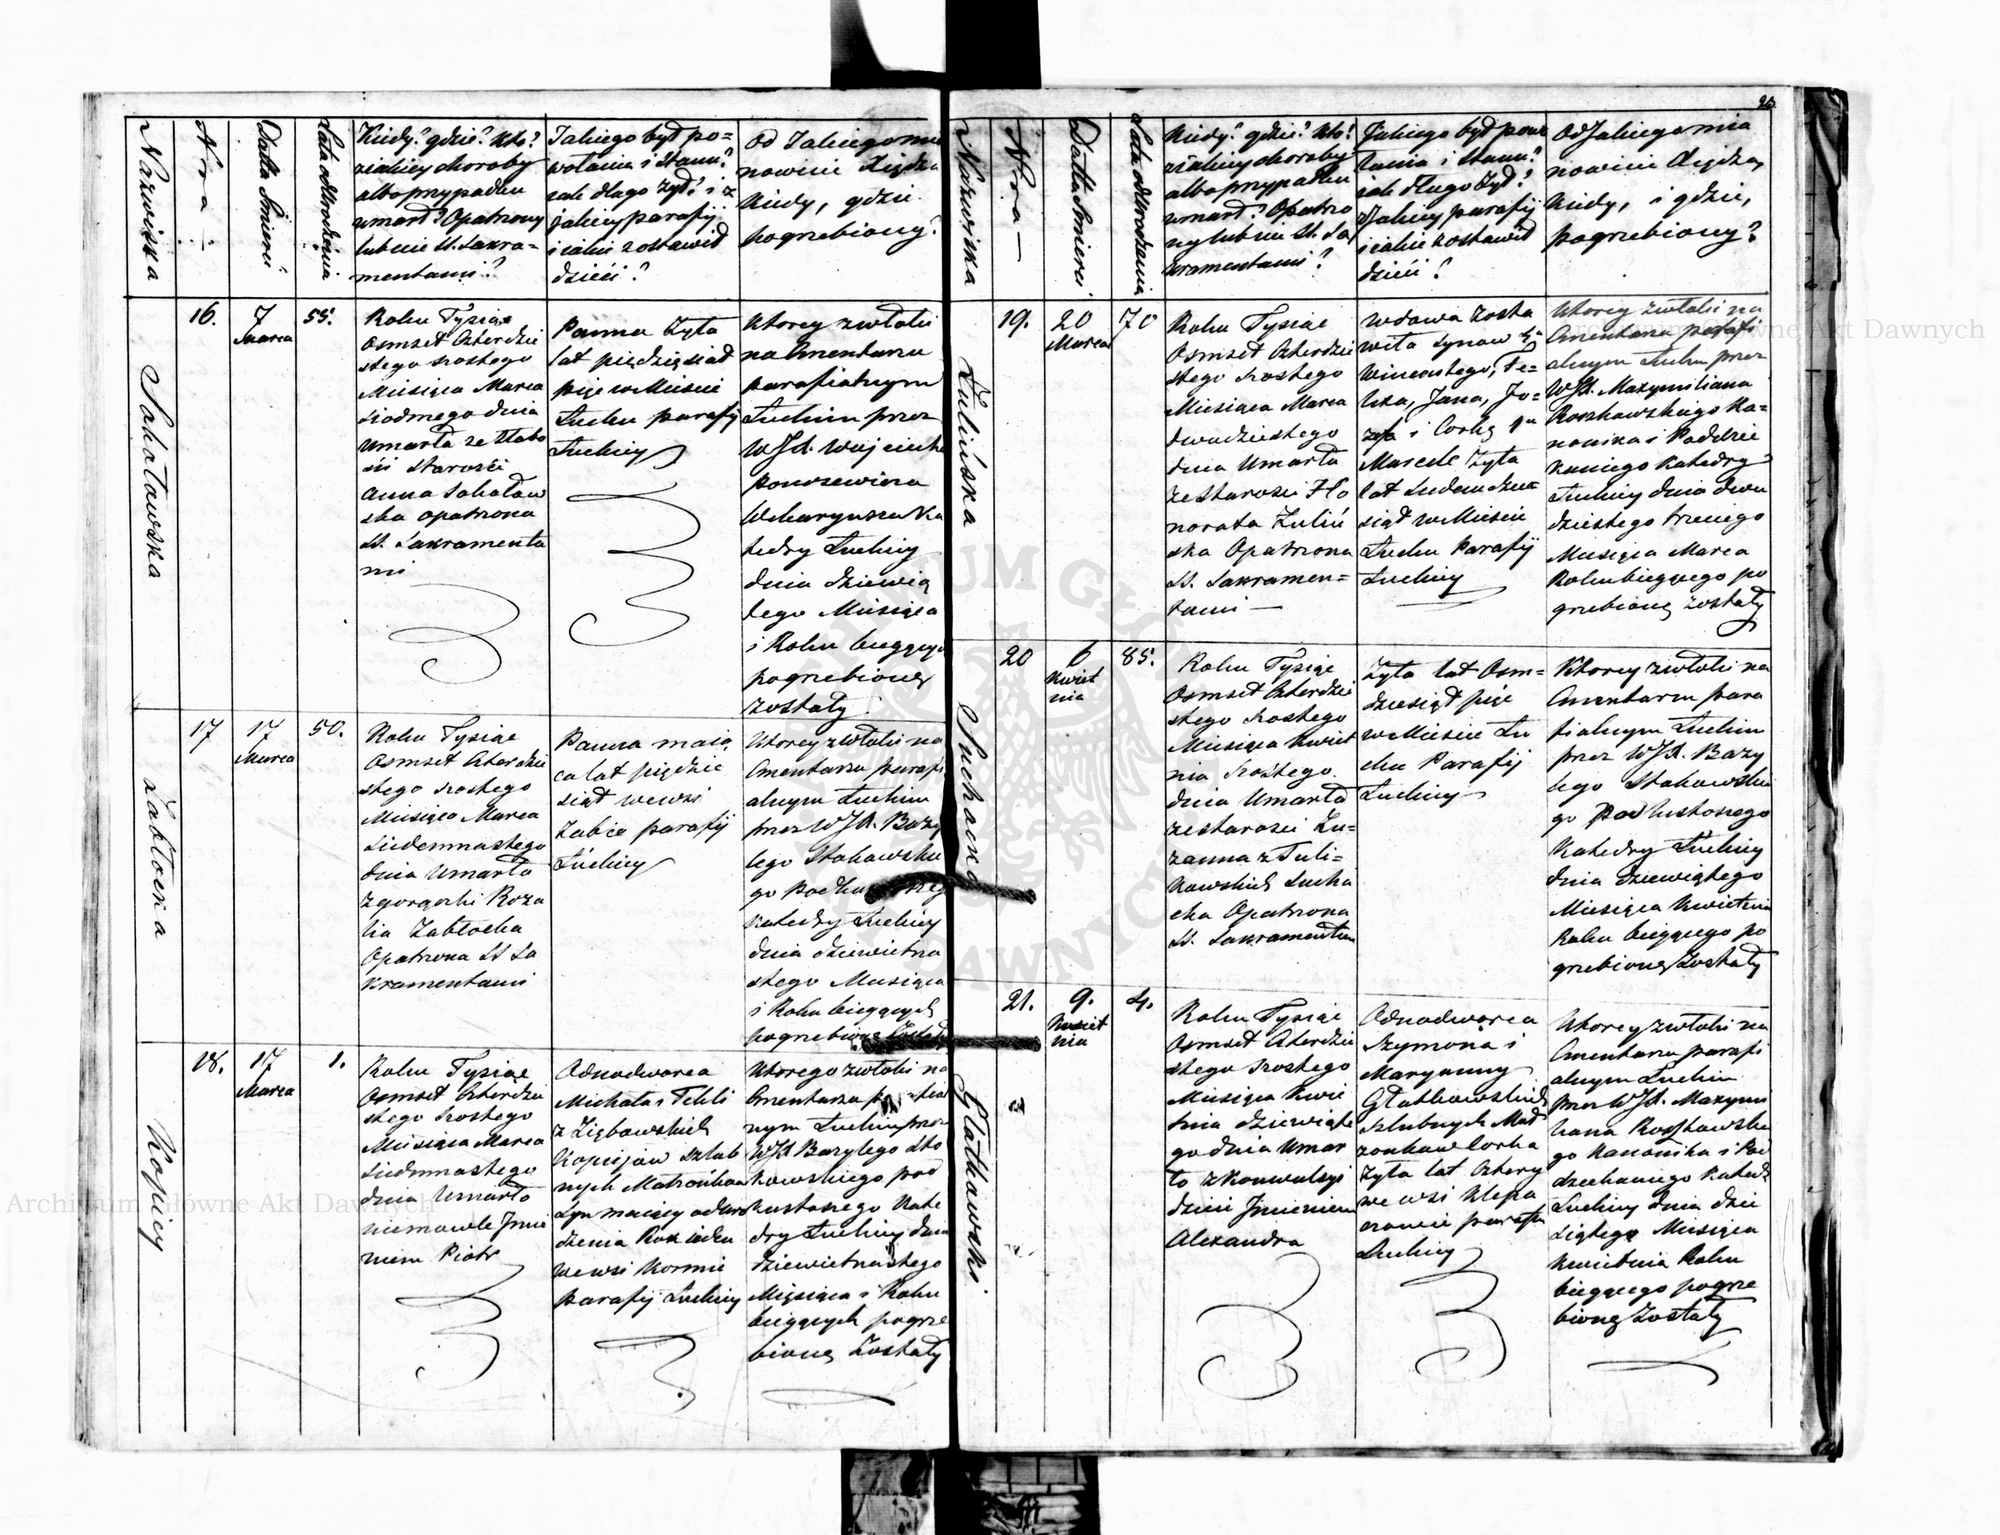 Nazwiska
Nra
Datta Śmierci
Lata od Urodzenia
Kiedy? gdzie? kto?
z iakiey choroby
albo przypadku
umarł? Opatrzony
lub nie SS. Sakra=
mentami?
Jakiego był po=
wołania i stanu?
jak długo żył? i z
jakiey parafij
i iakie zostawił
dzieci?
Od Jakiego mia
nowicie Xiędza
kiedy, gdzie
pogrzebiony?
Sokołowska
16.
7
Marca
55.
Roku Tysiąc
Osmset Czterdzie
stego szostego
Miesiąca Marca
siodmego dnia
umarła ze słabo
ści starości
Anna Sokołow
ska opatrzona
SS. Sakramenta
mi
Panna żyła
lat pięćdziesiąt
pięć w Mieście
Łucku parafij
Łuckiey
Ktorey zwłoki
na Cmentarzu
parafialnym
Łuckim przez
WJX. Wojciecha
Wikaryusza Ka
tedry Łuckiey
dnia dziewią
tego Miesiąca
i Roku bieżącego
pogrzebione
zostały.
Zabłocka
17
17
Marca
50.
Roku Tysiąc
Osmset Czterdzie
stego szostego
Miesiąca Marca
siedemnastego
dnia umarła
z gorączki Roza
lia Zabłocka
Opatrzona SS Sa
kramentami
Panna maią
ca lat pięćdzie
siąt we wsi
Zabce parafij
Łuckiey
Ktorey zwłoki na
Cmentarzu parafi
alnym Łuckim
przez WJX. Bazy
lego Stokowskie
go Podkustoszego
Katedry Łuckiey
dnia dziewietna
stego Miesiąca
i Roku bieżących
pogrzebione zostały
Kopiey
18.
17
Marca
1.
Roku Tysiąc
Osmset Czterdzie
stego szostego
Miesiąca Marca
siedmnastego
dnia Umarło
niemowle Jmie
niem Piotr
Odnodworca
Michała i Tekli
z Ziębowskich
Kopiejow szlub
nych Małżonkow
syn maiący od Uro
dzenia Rok ieden
we wsi
parafij Łuckiey
Ktorego zwłoki na
Cmentarzu parafial
nym Łuckim przez
WJX Bazylego Sto
kowskiego pod
kustoszego Kate
dry Łuckiey dnia
dziewietnastego
Miesiąca i Roku
bieżących pogrze
bione Zostały
23.
Nazwiska
Nra
Datta Śmierci
Lata od Urodzenia
Kiedy? gdzie? kto?
z iakiey choroby
albo przypadku
umarł? Opatrzo
ny lub nie SS. Sa
kramentami?
Jakiego był powo
łania i stanu?
jak długo żył?
z Jakiey parafij
i iakie zostawił
dzieci?
Od Jakiego mia
nowicie Xiędza,
kiedy, i gdzie,
pogrzebiony?
Żulińska
19.
20
Marca
70
Roku Tysiąc
Osmset Czterdzie
stego szostego
Miesiąca Marca
dwudziestego
dnia Umarła
ze starosci Ho
norata Żuliń
ska Opatrzona
SS. Sakramen=
tami
Wdowa zosta
wiła synow 4ch
Wincentego, Fe=
lixa, Jana, Jo=
zefa i Corkę 1ną
żyła
lat siedemdzie
siąt w Mieście
Łucku Parafij
Łuckiey
Ktorey zwłoki na
Cmentarzu parafi
alnym Łuckim przez
WJX. Maxymiliana
Roszkowskiego Ka=
nonika i Poddzie
kaniego Katedry
Łuckiey dnia dwu
dziestego trzeciego
Miesiąca Marca
Roku bieżącego po
grzebione zostały
Suchacka
20
6
Kwiet
nia
85.
Roku Tysiąc
Osmset Czterdzie
stego szostego
Miesiąca Kwiet
nia szostego
dnia Umarła
ze starosci Zu=
zanna z Tuli=
kowskich Sucha
cka Opatrzona
SS. Sakramentami
Żyła lat Osm=
dziesiąt pięć
w Mieście Łu
cku Parafij
Łuckiey
Ktorey zwłoki na
Cmentarzu para
fialnym Łuckim
przez WJX. Bazy
lego Stokowskie
go Podkustoszego
Katedry Łuckiey
dnia dziewiątego
Miesiąca Kwietnia
Roku bieżącego po
grzebione Zostały
Głatkowski
21.
9.
Kwiet
nia
4.
Roku Tysiąc
Osmset Czterdzie
stego szostego
Miesiąca Kwie
tnia dziewiąte
go dnia Umar
ło z konwulsyi
dziecie Jmieniem
Alexandra
Odnodworca
Szymona i
Maryanny
Głatkowskich
szlubnych Mał
żonkow Corka
żyła lat Cztery
we wsi Klepa
czowie parafii
Łuckiey
Ktorey zwłoki na
Cmentarzu parafi
alnym Łuckim
przez WJX. Maxymi
liana Roszkowskie
go Kanonika i Pod
dziekaniego Kated.
Łuckiey dnia dzie
siątego Miesiąca
Kwietnia Roku
bieżącego pogrze
bione Zostały
Archiwum Główne Akt Dawnych
Archiwum Główne Akt Dawnych
ARCHIWUM GŁÓWNE AKT DAWNYCH